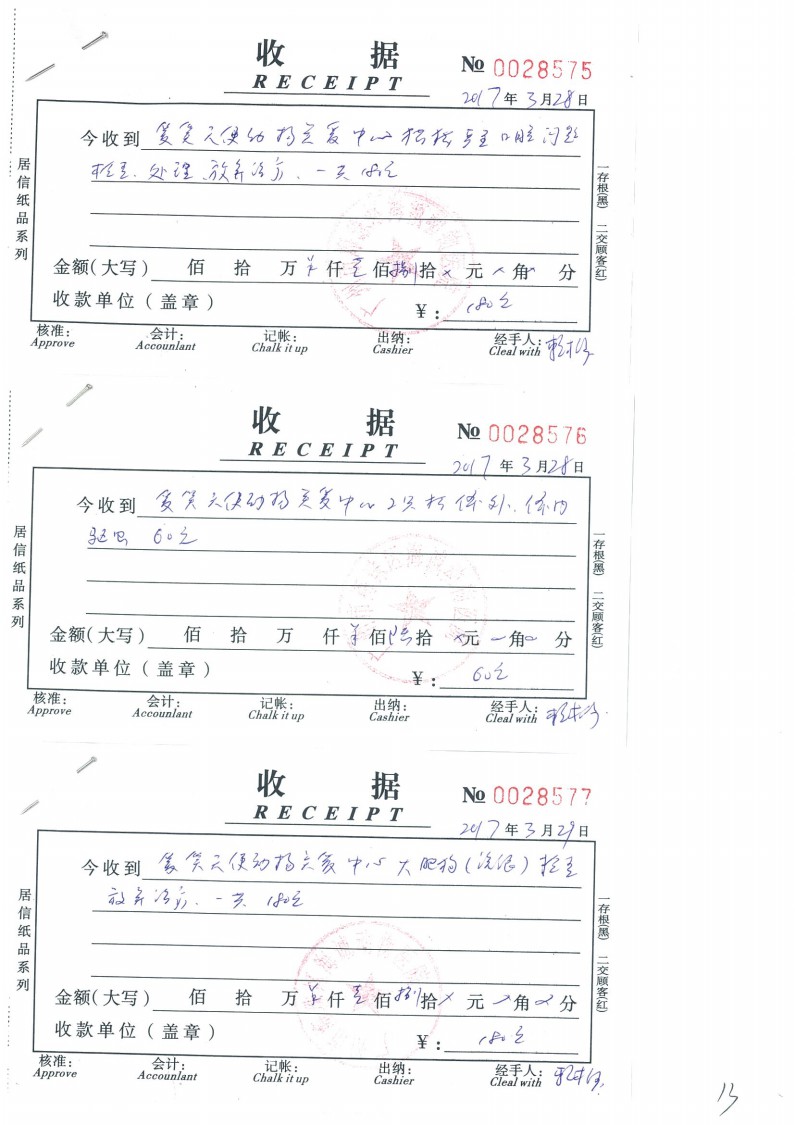 收 据
RECEIPT
№ 0028575
2017年3月28日
今收到 爱笑天使动物关爱中心 检查口腔问题
检查、处理、放弃治疗、一共180元
金额(大写) 佰 拾 万 仟壹佰捌拾 元 角 分
收款单位(盖章) ¥: 180元
核准: 会计: 记帐: 出纳: 经手人:
Approve Accounlant Chalk it up Cashier Cleal with
居信纸品系列
一存根(黑) 二交顾客(红)
收 据
RECEIPT
№ 0028576
2017年3月28日
今收到 爱笑天使动物关爱中心 2只 体外、体内
驱虫 60元
金额(大写) 佰 拾 万 仟 佰陆拾 元 角 分
收款单位(盖章) ¥: 60元
核准: 会计: 记帐: 出纳: 经手人:
Approve Accounlant Chalk it up Cashier Cleal with
居信纸品系列
一存根(黑) 二交顾客(红)
收 据
RECEIPT
№ 0028577
2017年3月29日
今收到 爱笑天使动物关爱中心 大肥狗( )检查
放弃治疗、一共 180元
金额(大写) 佰 拾 万 仟壹佰捌拾 元 角 分
收款单位(盖章) ¥: 180元
核准: 会计: 记帐: 出纳: 经手人:
Approve Accounlant Chalk it up Cashier Cleal with
居信纸品系列
一存根(黑) 二交顾客(红)
13